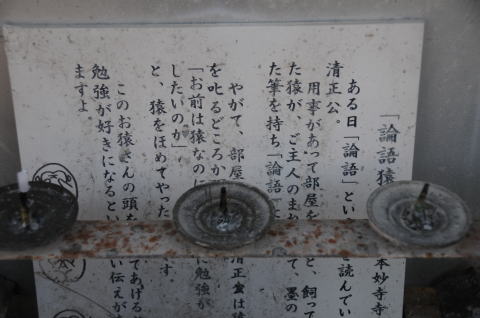 「論語猿 本妙寺寺
ある日「論語」とい を読んでい
清正公。
用事があって部屋を と、飼って
た猿が、ご主人のま て、墨の
た筆を持ち「論語」に
やがて、部屋 清正公は
を叱るどころか
「お前は猿なのに 勉強が
したいのか」
と、猿をほめてやった す
このお猿さんの頭を てあげる
勉強が好きになるとい 伝えが
ますよ。